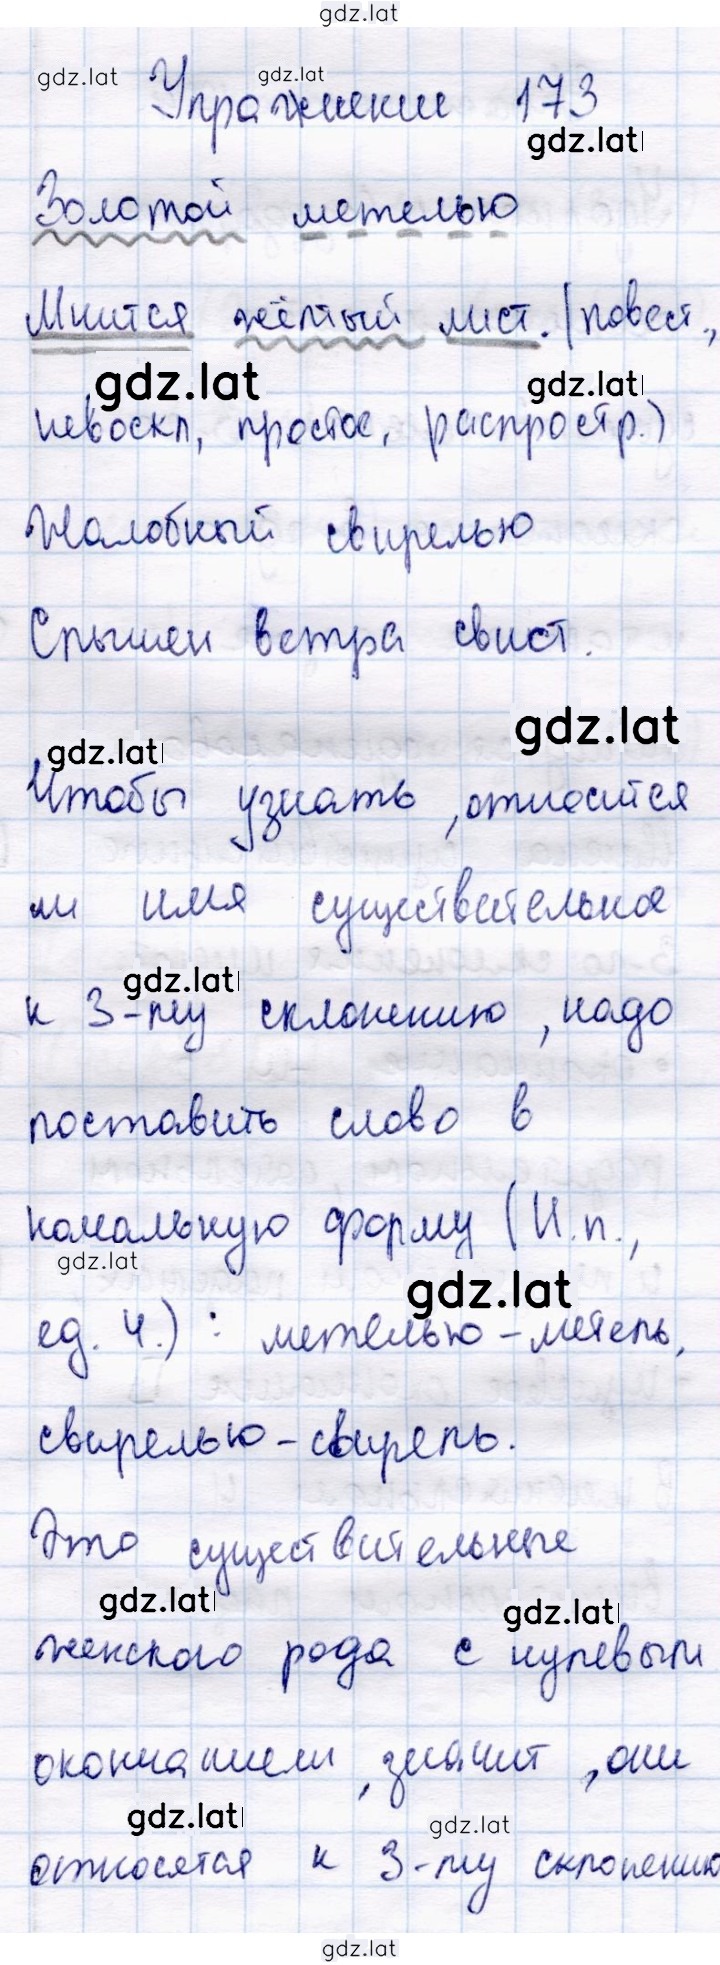 gdz.lat
gdz.lat gdz.lat
Упражнение 173
gdz.lat
Золотой метелью
Мчится жёлтый лист. (повест.,
gdz.lat gdz.lat
невоскл, простое, распростр.)
Жалобный свирелью
Слышен ветра свист.
gdz.lat
gdz.lat
Чтобы узнать, относится
ли имя существительное
gdz.lat
к 3-му склонению, надо
поставить слово в
начальную форму (И.п.,
gdz.lat
gdz.lat
ед. ч.): метелью-метель,
свирелью-свирель.
Это существительные
gdz.lat gdz.lat
женского рода с нулевым
окончанием, значит, они
gdz.lat gdz.lat
относятся к 3-му склонению
gdz.lat